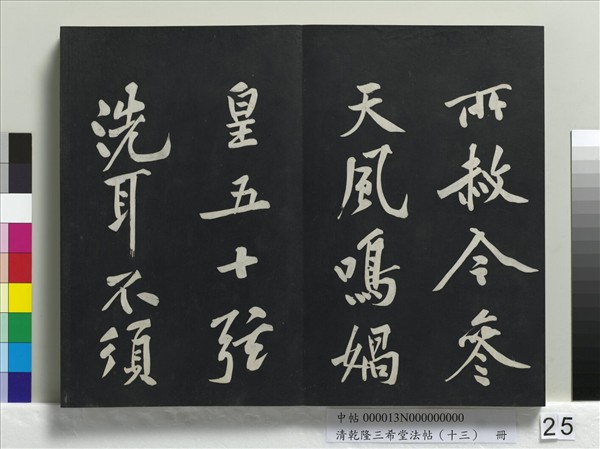 所赦今參
天風鳴媧
皇五十弦
洗耳不須
中帖 000013N000000000
清乾隆三希堂法帖(十三) 冊
25